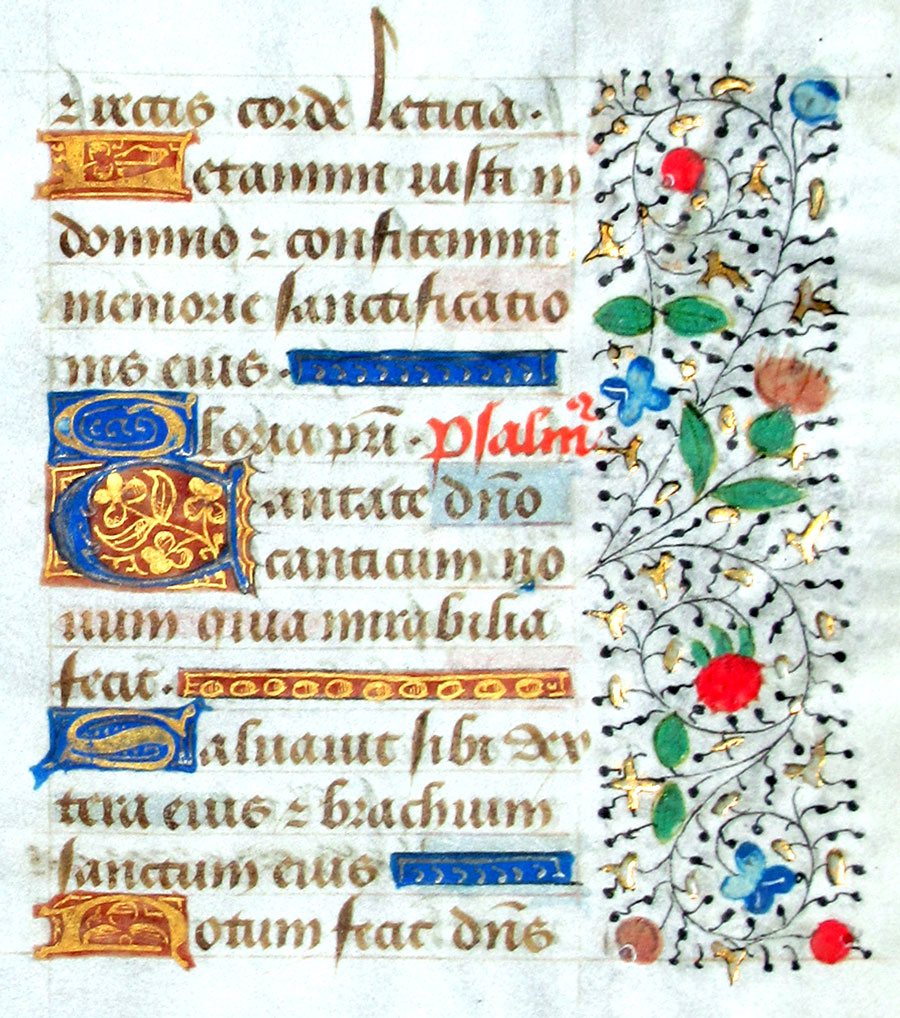 ⁊ rectis corde leticia.
Letamini iusti in
domino ⁊ confitemini
memorie sanctificatio
nis eius.
Gloria pri̅. Psalm
Cantate dn̅o
canticum no
uum quia mirabilia
fecit.
Saluauit sibi dex
tera eius ⁊ brachium
sanctum eius
Notum fecit dn̅s